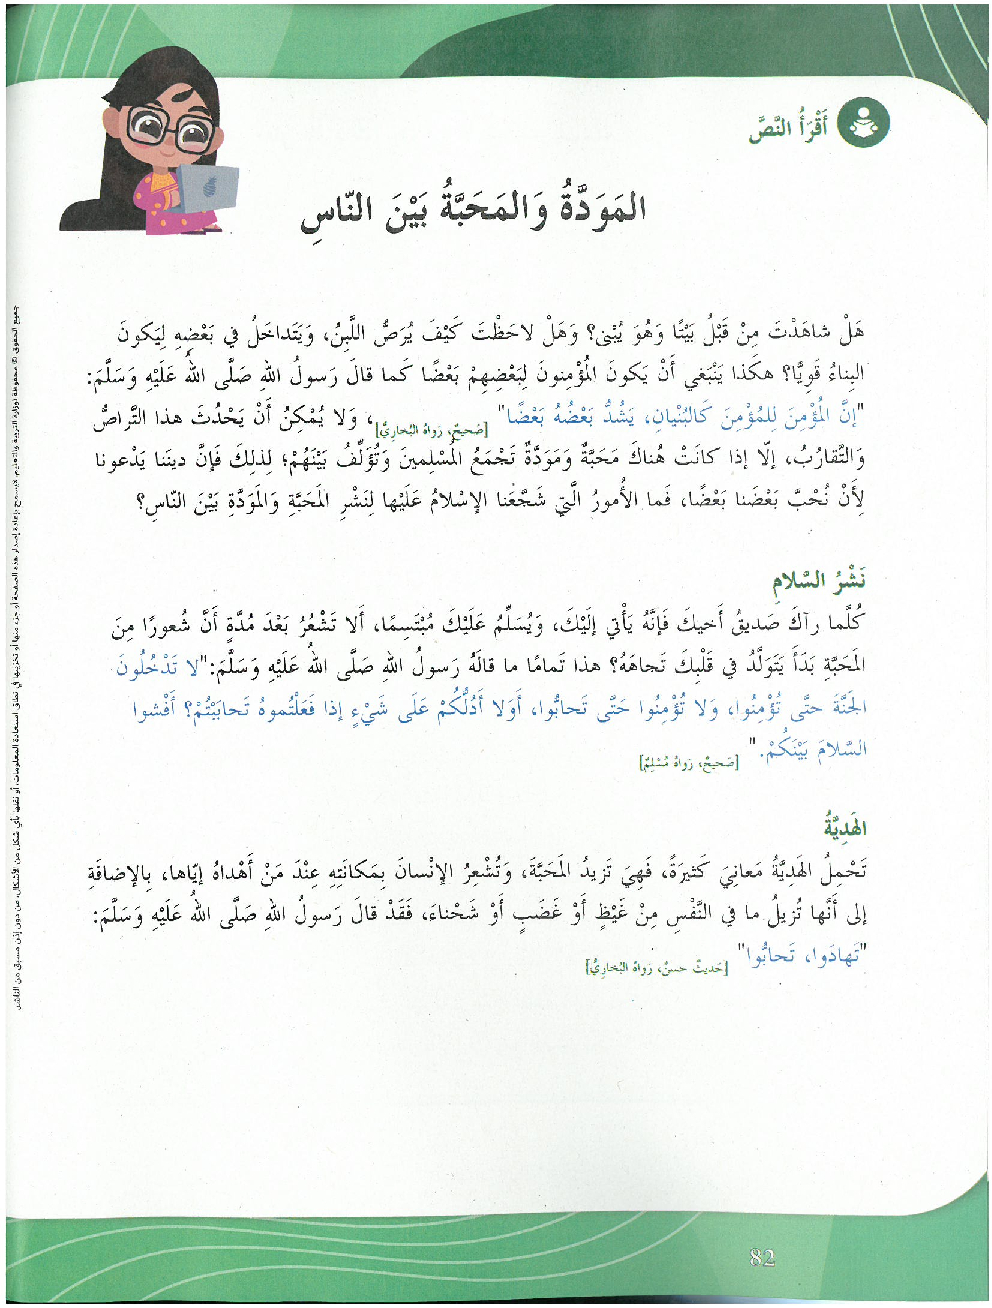 أَقْرَأُ النَّصَّ
المَوَدَّةُ وَالمَحَبَّةُ بَيْنَ النّاسِ
هَلْ شاهَدْتَ مِنْ قَبْلُ بَيْتًا وَهُوَ يُبْنى؟ وَهَلْ لاحَظْتَ كَيْفَ يُرَصُّ اللَّبِنُ، وَيَتَداخَلُ في بَعْضِهِ لِيَكونَ
البِناءُ قَوِيًّا؟ هكَذا يَنْبَغي أَنْ يَكونَ المُؤْمِنونَ لِبَعْضِهِمْ بَعْضًا كَما قالَ رَسولُ اللهِ صَلَّى اللهُ عَلَيْهِ وَسَلَّمَ:
"إِنَّ المُؤْمِنَ لِلمُؤْمِنَ كَالبُنْيانِ، يَشُدُّ بَعْضُهُ بَعْضًا" [صَحيحٌ، رَواهُ البُخارِيُّ]، وَلا يُمْكِنُ أَنْ يَحْدُثَ هذا التَّراصُّ
وَالتَّقارُبُ، إِلّا إِذا كانَتْ هُناكَ مَحَبَّةٌ وَمَوَدَّةٌ تَجْمَعُ المُسْلِمينَ وَتُؤَلِّفُ بَيْنَهُمْ؛ لِذلِكَ فَإِنَّ دينَنا يَدْعونا
لِأَنْ نُحْبَّ بَعْضَنا بَعْضًا، فَما الأُمورُ الَّتي شَجَّعَنا الإِسْلامُ عَلَيْها لِنَشْرِ المَحَبَّةِ وَالمَوَدَّةِ بَيْنَ النّاسِ؟
نَشْرُ السَّلامِ
كُلَّما رآكَ صَديقُ أَخيكَ فَإِنَّهُ يَأْتي إِلَيْكَ، وَيُسَلِّمُ عَلَيْكَ مُبْتَسِمًا، أَلا تَشْعُرُ بَعْدَ مُدَّةٍ أَنَّ شُعورًا مِنَ
المَحَبَّةِ بَدَأَ يَتَوَلَّدُ في قَلْبِكَ تَجاهَهُ؟ هذا تَمامًا ما قالَهُ رَسولُ اللهِ صَلَّى اللهُ عَلَيْهِ وَسَلَّمَ:"لا تَدْخُلُونَ
الجَنَّةَ حتَّى تُؤْمِنُوا، وَلا تُؤْمِنُوا حَتَّى تَحابُّوا، أَوَلا أَدُلُّكُمْ عَلى شَيْءٍ إِذا فَعَلْتُموهُ تَحابَبْتُمْ؟ أَفْشوا
السَّلامَ بَيْنَكُمْ." [صَحيحٌ، رَواهُ مُسْلِمٌ]
الهَدِيَّةُ
تَحْمِلُ الهَدِيَّةُ مَعانِيَ كَثيرَةً، فَهِيَ تَزيدُ المَحَبَّةَ، وَتُشْعِرُ الإِنْسانَ بِمَكانَتِهِ عِنْدَ مَنْ أَهْداهُ إِيّاها، بِالإِضافَةِ
إِلى أَنَّها تُزيلُ ما في النَّفْسِ مِنْ غَيْظٍ أَوْ غَضَبٍ أَوْ شَحْناءَ، فَقَدْ قالَ رَسولُ اللهِ صَلَّى اللهُ عَلَيْهِ وَسَلَّمَ:
"تَهادَوا، تَحابُّوا" [حَديثٌ حسنٌ، رَواهُ البُخارِيُّ]
82